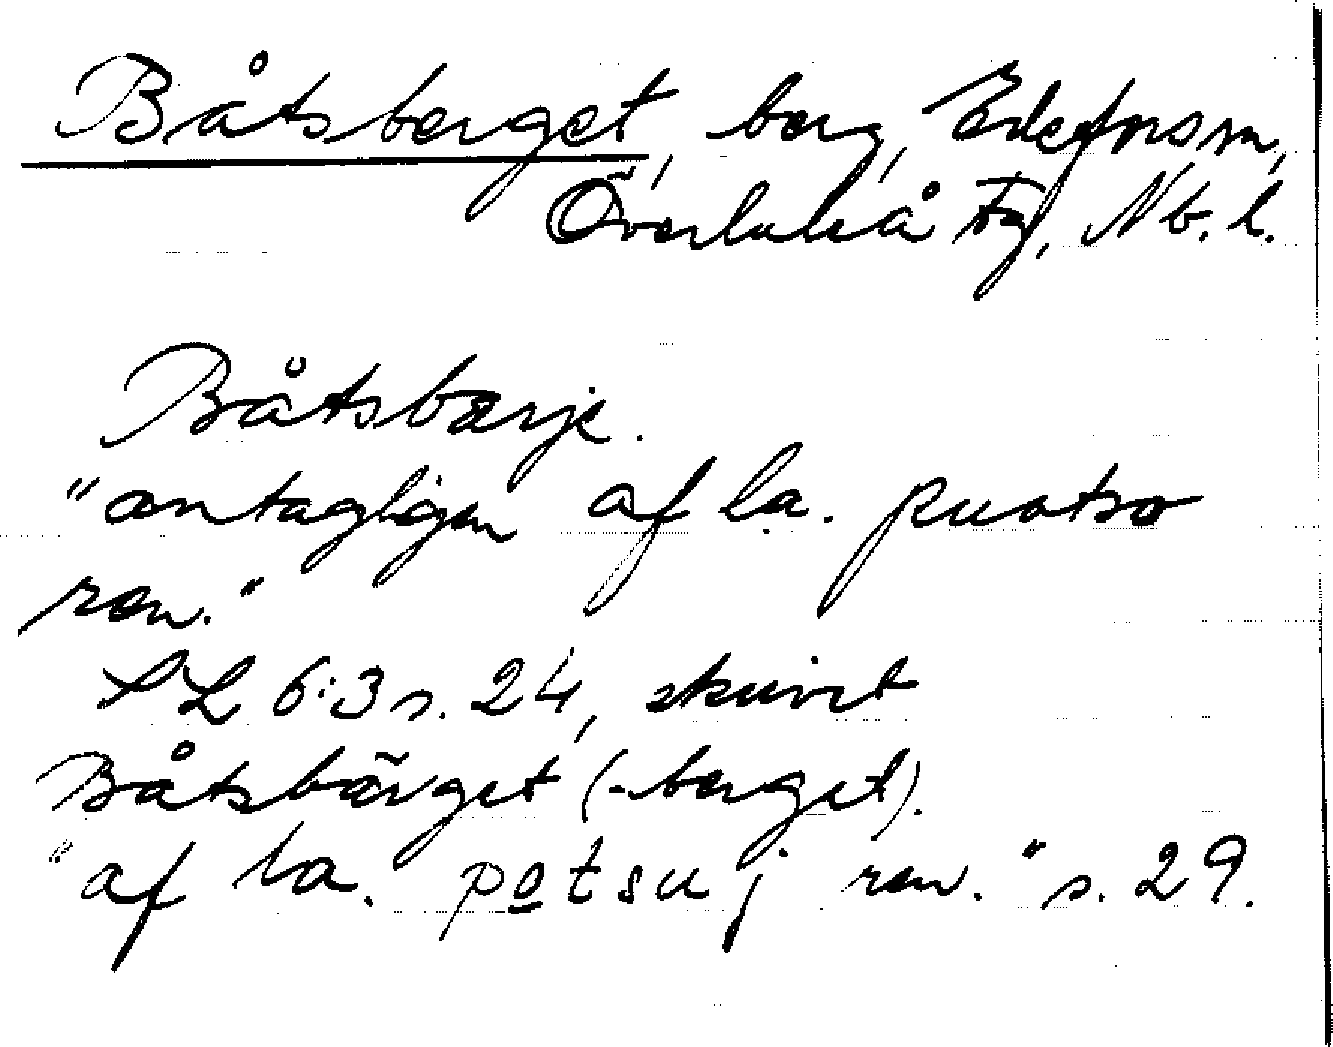 Båtsberget, berg, Edefors sn,
Överluleå tg, Nb. l.
Båtsbærje.
"antagligen af la. puotso
ren."
SL 6:3 s. 24, skrivet
Båtsbärget (-berget).
"af la. potsuj ren." s. 29.